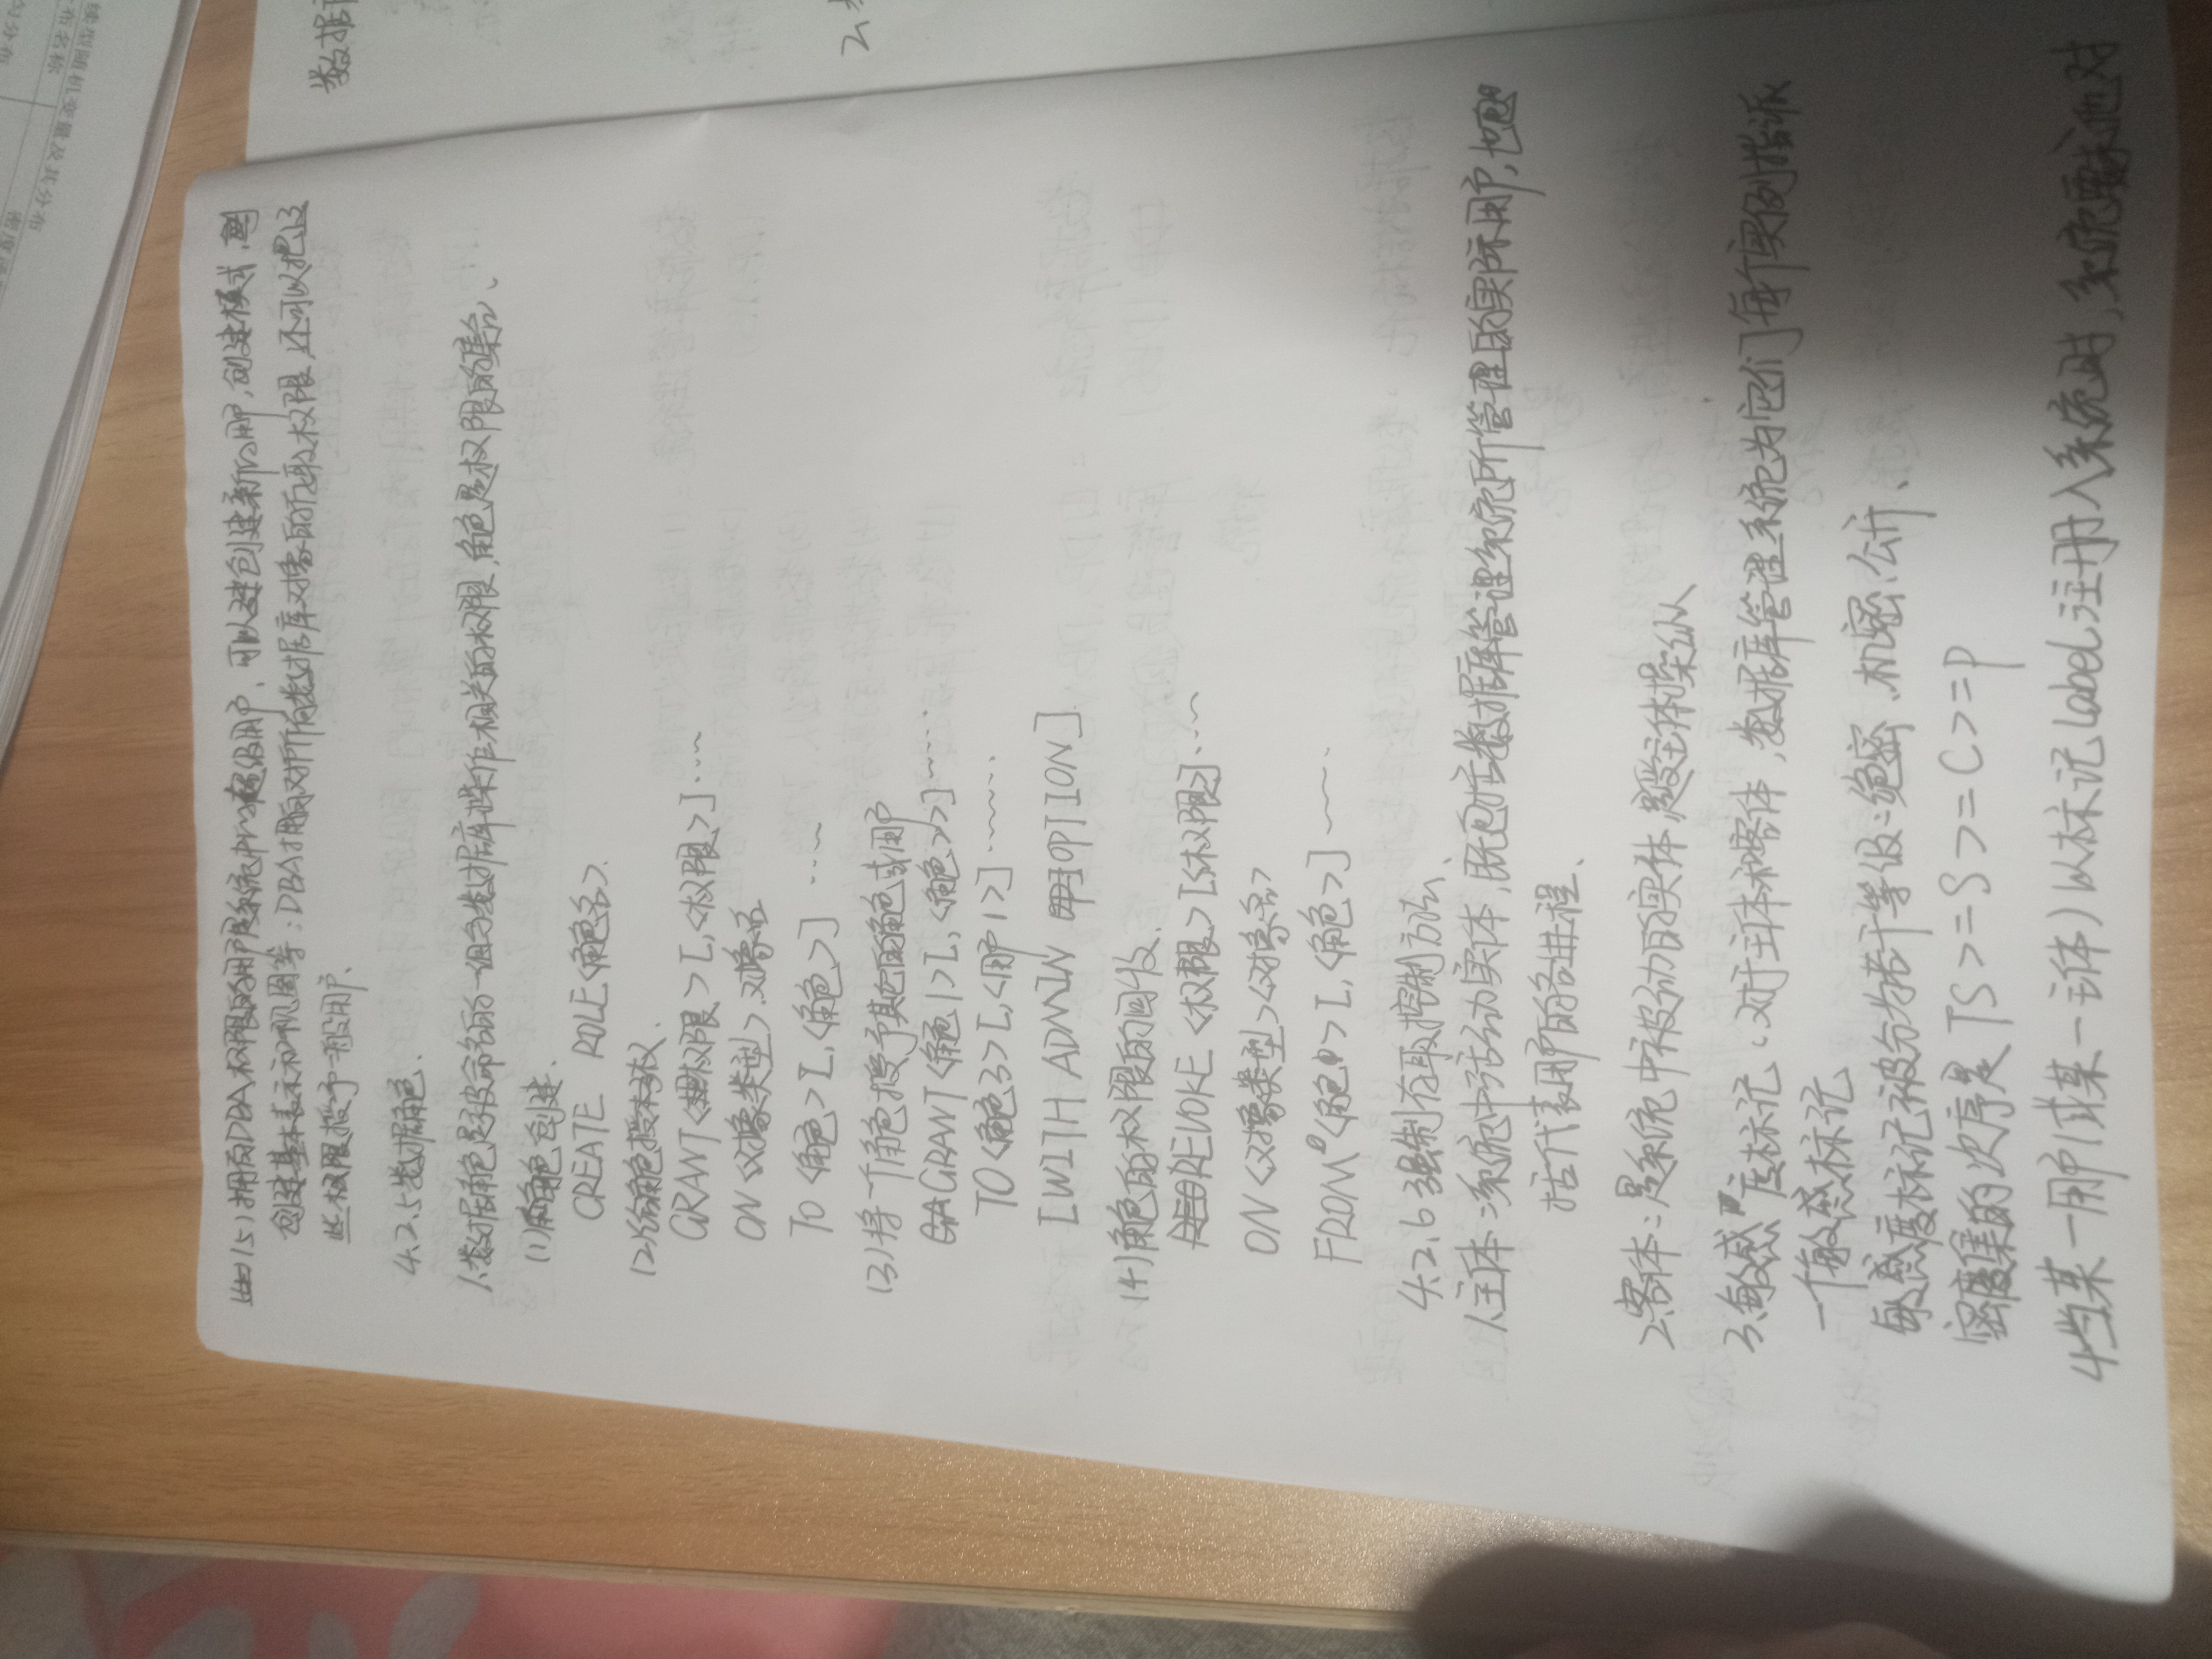 (5)拥有DBA权限的用户是系统中的超级用户、可以创建新的用户,创建模式,
创建基本表示和视图等:DBA拥有对所有数据库对象的存取权限,还可以把这
些权限授予一般用户、
4.2.5数据角色、
1.数据角色是被命名的一组与数据库操作相关的权限,角色是权限的集合、
(1)角色创建、
CREATE ROLE<角色名>、
(2)给角色授权、
GRANT<权限>[,<权限>]……
ON<对象类型>对象名
TO<角色>[,<角色>]……
(3)将一个角色授予其它的角色或用户
GRANT<角色1>[,<角色2>]……
TO<角色3>[,<用户1>]……
[WITH ADMIN OPTION]
(4)角色的权限的回收、
REVOKE<权限>[<权限2>]……
ON<对象类型><对象名>
FROM<角色1>[,<角色>]……
4.2.6强制存取控制方法、
1、主体:系统中活动实体,既包括数据库管理系统所管理的实际用户,也包
括代表用户的各进程、
2.客体:是系统中被动的实体,是受主体操纵
3、敏感度标记、对于主体和客体,数据库管理系统为它们每个实例指派
一个敏感标记
敏感度标记被分为若干等级:绝密、机密、公开、
密集的次序是TS>=S>=C>=P
4当某一用户(或某一主体)以标记label注册入系统时,系统要求他对
数据
2、
随机变量及其分布
名称